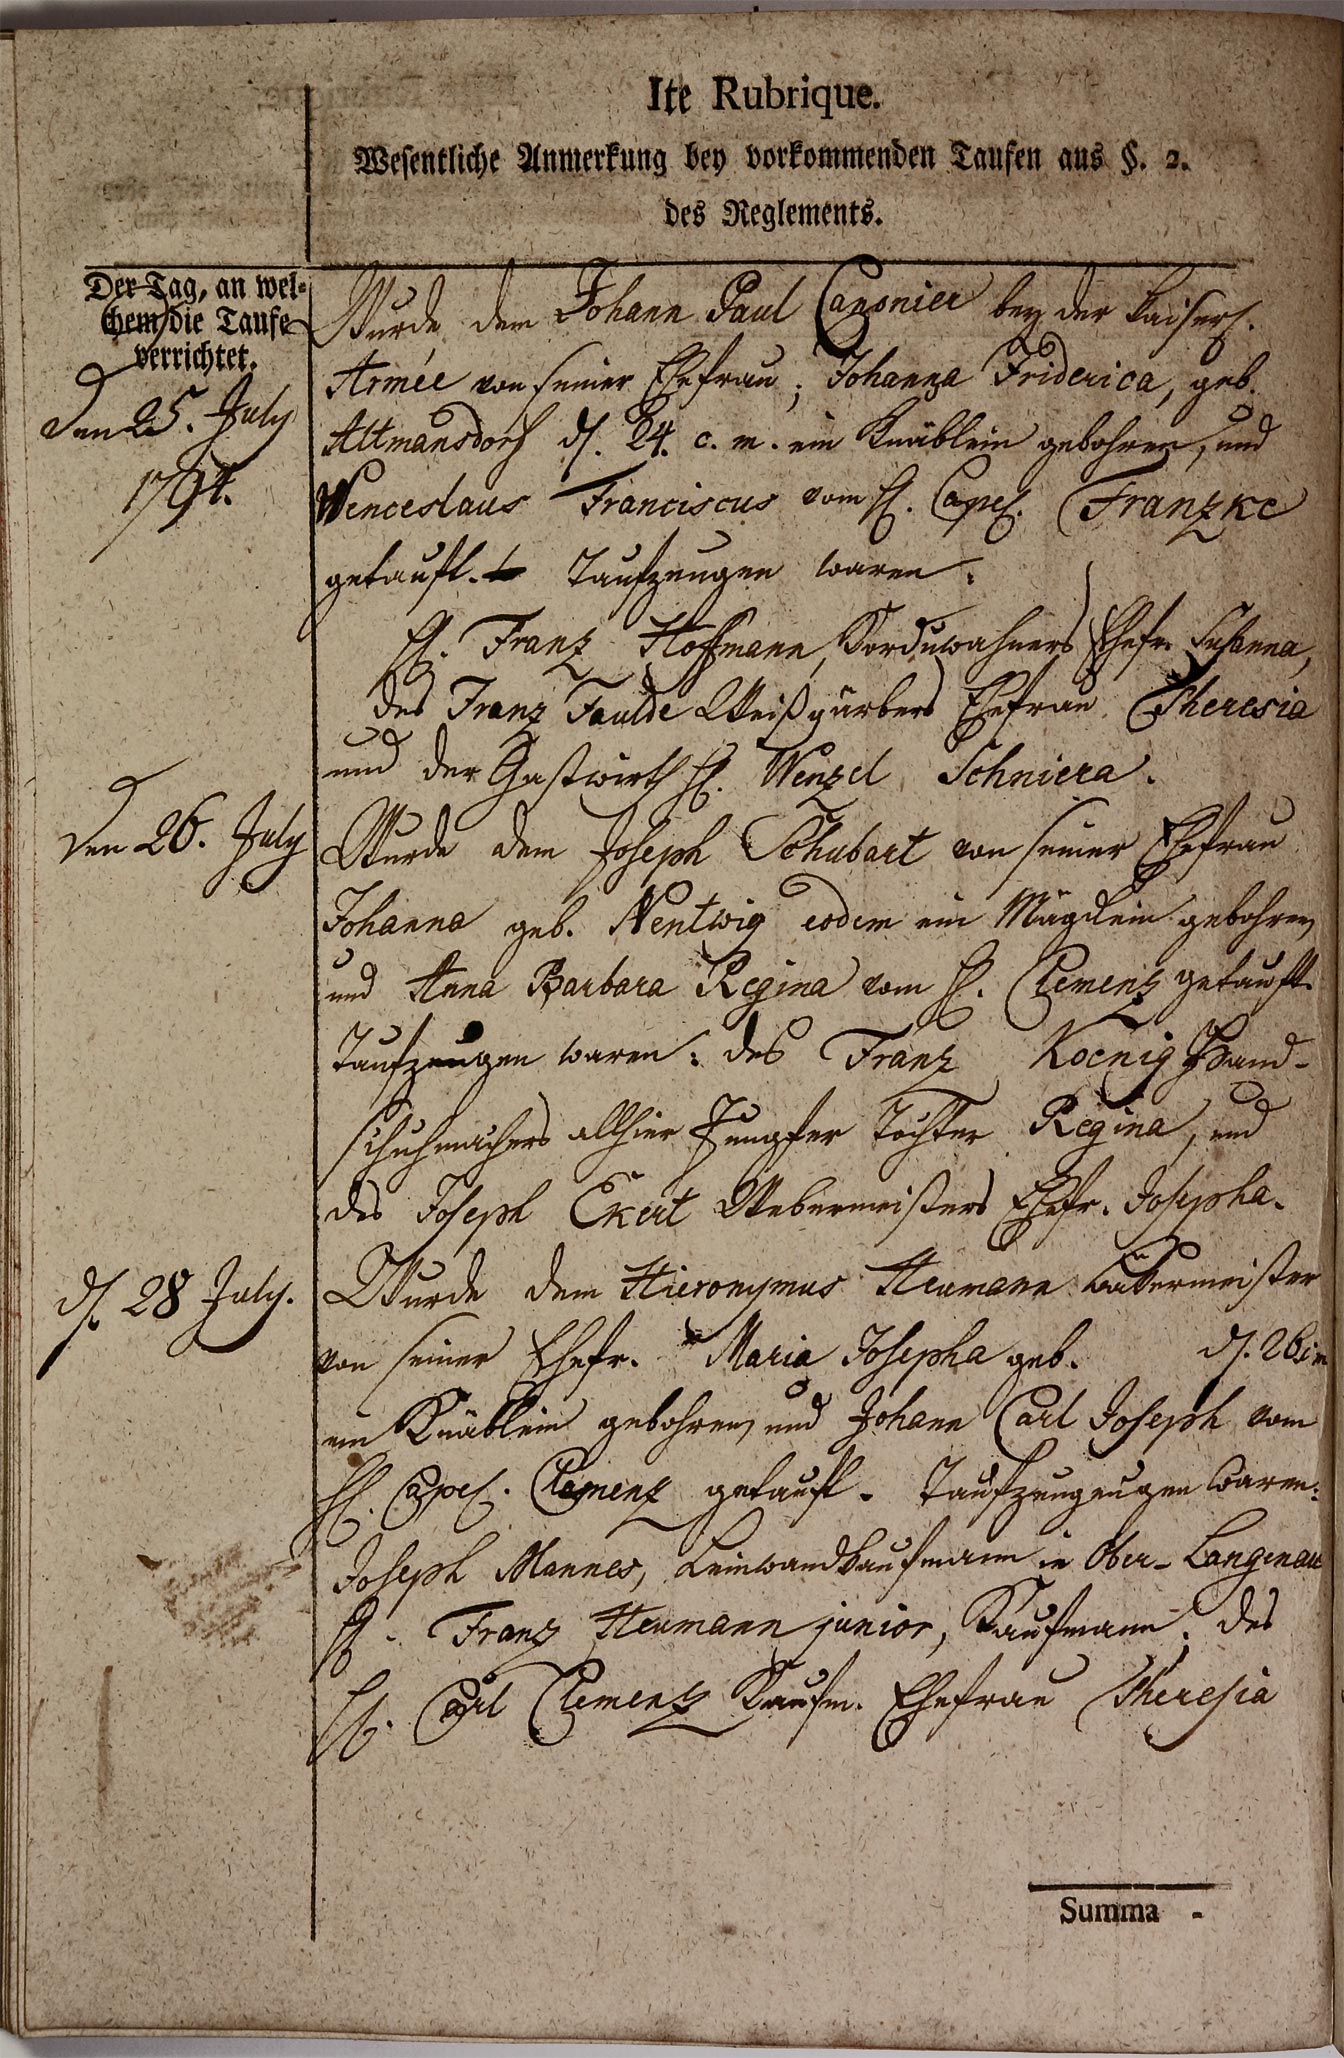 Ite Rubrique.
Wesentliche Anmerkung bey vorkommenden Taufen aus §. 2.
des Reglements.
Der Tag, an wel-
chem die Taufe
verrichtet.
Den 25. July
1794.
Wurde dem Johann Paul Canonier bey der Kaiserl.
Armée von seiner Ehefrau, Johanna Friderica, geb.
Altmansdorf d. 24. c. m. ein Knäblein gebohren, und
Wenceslaus Franciscus vom H. Capel. Franzke
getauft. Taufzeugen waren:
H. Franz Hoffmann, Korduwahners Ehefr. Susanna,
des Franz Faulde Weißgärbers Ehefrau Theresia
und der Gastwirth H. Wenzel Schniera.
Den 26. July
Wurde dem Joseph Schubart von seiner Ehefrau
Johanna geb. Nentwig eodem ein Mägdlein gebohren,
und Anna Barbara Regina vom H. Clemenz getauft.
Taufzeugen waren: des Franz Koenig Hand-
schuhmachers allhier Jungfer Tochter Regina, und
des Joseph Ekert Webermeisters Ehefr. Josepha.
d. 28 July.
Wurde dem Hieronymus Heumann Bäkermeister
von seiner Ehefr. Maria Josepha geb. d. 26
ein Knäblein gebohren, und Johann Carl Joseph vom
H. Capel. Clemenz getauft. Taufzeugeugen waren:
Joseph Mannes, Leinwandkaufmann in Ober-Langenau
H. Franz Heumann junior, Kaufmann, des
H. Carl Clemenz Kaufm. Ehefrau Theresia
Summa -